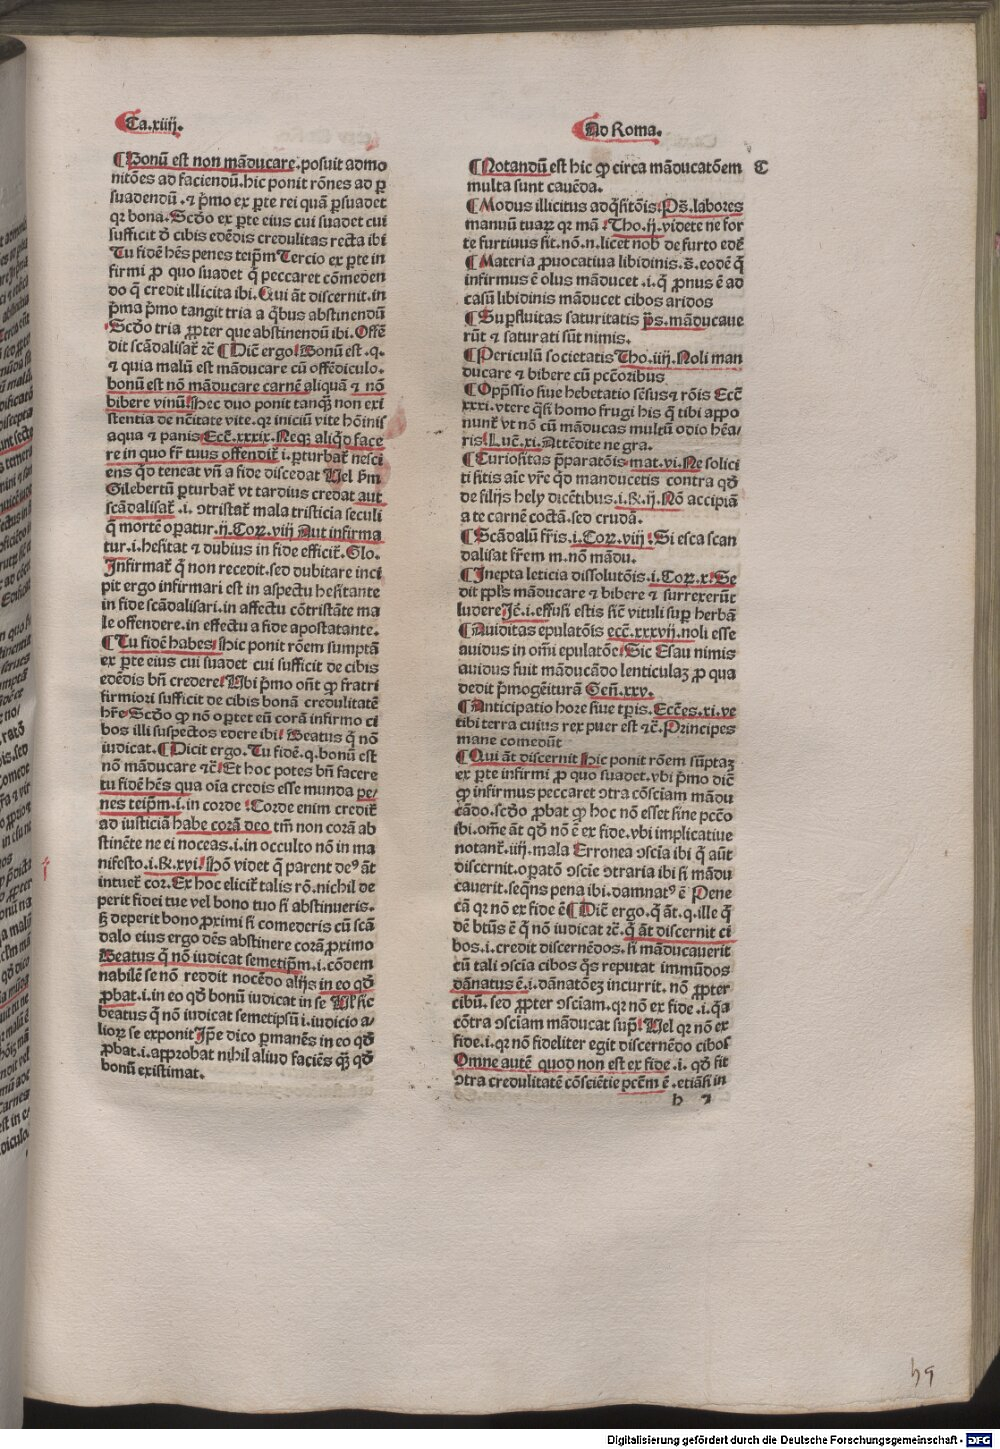 Ca.xiiij.
¶Bonū est non māducare.posuit admo
nitōes ad faciendū.hic ponit rōnes ad ꝑ
suadendū.⁊ pͥmo ex ꝑte rei quā ꝑsuadet
qꝛ bona.Scđo ex ꝑte eius cui suadet cui
sufficit đ cibis edēdis credulitas recta ibi
Tu fidē hēs penes teipm̄ Tercio ex ꝑte in
firmi ꝓ quo suadet q̄ peccaret cōmeden
do q̄ credit illicita ibi.Qui āt discernit.in
pͥma pͥmo tangit tria a qͥbus abstinendū
Scđo tria ꝓpter que abstinendū ibi.Offē
dit scādalisat̄ ⁊c̄ ¶Dic̄ ergo Bonū est.q.
⁊ quia malū est māducare cū offēdiculo.
bonū est nō māducare carnē aliquā ⁊ nō
bibere vinū Hec duo ponit tanqꝫ non exi
stentia de nc̄itate vite.qꝛ iniciū vite hōinis
aqua ⁊ panis Ecc̄.xxxix.Neqꝫ aliqͥd face
re in quo fr̄ tuus offendit̄ i.ꝑturbat̄ nesci
ens qͥd teneat vn̄ a fide discedat Uel pͥm
Gilebertū ꝑturbat̄ vt tardius credat aut
scādalisat̄.i.ↄtristat̄ mala tristicia seculi
q̄ mortē oꝑatur.ij.Coꝝ.viij Aut infirma
tur.i.hesitat ⁊ dubius in fide efficit̄.Glo.
Infirmat̄ q̄ non recedit.sed dubitare inci
pit ergo infirmari est in aspectu hesitante
in fide scādalisari.in affectu cōtristāte ma
le offendere.in effectu a fide apostatante.
¶Tu fidē habes Hic ponit rōem sumptā
ex ꝑte eius cui suadet cui sufficit de cibis
edēdis bn̄ credere Ubi pͥmo on̄t ꝙ fratri
firmiori sufficit de cibis bonā credulitatē
hr̄e Scđo ꝙ nō oꝑtet eū corā infirmo ci
bos illi suspectos edere ibi Beatus q̄ nō
iudicat.¶Dicit ergo.Tu fidē.q.bonū est
nō māducare ⁊c̄ Et hoc potes bn̄ facere
tu fidē hēs qua oīa credis esse munda pe/
nes teipm̄.i.in corde Corde enim credit̄
ad iusticiā habe corā deo tm̄ non corā ab
stinēte ne ei noceas.i.in occulto nō in ma
nifesto.i.R̄.xvi.Hō videt q̄ parent deꝰ āt
intuet̄ cor.Ex hoc elicit̄ talis rō.nichil de
perit fidei tue vel bono tuo si abstinueris.
sꝫ deperit bono ꝓximi si comederis cū scā
dalo eius ergo dēs abstinere corā ꝓximo
Beatus q̄ nō iudicat semetipm̄.i.cōdem
nabilē se nō reddit nocēdo alijs in eo qđ
ꝓbat.i.in eo qđ bonū iudicat in se Ul̄ sic
beatus q̄ nō iudicat semetipsū i.iudicio a/
lioꝝ se exponit Ip̄e dico ꝑmanēs in eo qđ
ꝓbat.i.approbat nihil aliud faciēs qꝫ qđ
bonū existimat.
Ad Roma.
¶Notandū est hic ꝙ circa māducatōem C
multa sunt cauēda.
¶Modus illicitus adqͥsitōis Ps̄.labores
manuū tuaꝝ qꝛ mā Tho.ij.videte ne for
te furtiuus sit.nō.n.licet nob̄ de furto edē
¶Materia ꝓuocatiua libidinis.s̄.eodē q̄
infirmus ē olus māducet.i.q̄ ꝓnus ē ad
casū libidinis māducet cibos aridos
¶Suꝑfluitas saturitatis pͥs.māducaue
rūt ⁊ saturati sūt nimis.
¶Periculū societatis Tho.iiij.Noli man
ducare ⁊ bibere cū pc̄coribus
¶Opp̄ssio siue hebetatio sēsus⁊ rōis Ecc̄
xxxi.vtere qͣsi homo frugi his q̄ tibi appo
nunt̄ vt nō cū māducas multū odio hēa/
ris Luc̄.xi.Attēdite ne gra.
¶Curiositas p̄paratōis mat.vi.Ne solici
ti sitis aīe vr̄e qͥd manducetis contra qđ
de filijs hely dicētibus.i.R̄.ij.Nō accipiā
a te carnē coctā.sed crudā.
¶Scādalū fr̄is.i.Coꝝ.viij Si esca scan
dalisat fr̄em m.nō mādu.
¶Inepta leticia dissolutōis.i.Coꝝ.x.Se
dit ppl̄s māducare ⁊ bibere ⁊ surrexerūt
ludere Ic̄.i.effusi estis sic̄ vituli suꝑ herbā
¶Auiditas epulatōis ecc̄.xxxvij.noli esse
auidus in om̄i epulatōe Sic Esau nimis
auidus fuit māducādo lenticulaꝫ ꝓ qua
dedit pͥmogēiturā Gen̄.xxv.
¶Anticipatio hore siue tꝑis.Ecc̄es.xi.ve
tibi terra cuius rex puer est ⁊c̄.Principes
mane comedūt
¶Qui āt discernit Hic ponit rōem sūptaꝫ
ex ꝑte infirmi ꝓ quo suadet.vbi pͥmo dic̄
ꝙ infirmus peccaret ↄtra cōsciam mādu
cādo.scđo ꝓbat ꝙ hoc nō esset sine pccō
ibi.om̄e āt qđ nō ē ex fide.vbi implicatiue
notant̄.iiij.mala Erronea ↄscīa ibi q̄ aūt
discernit.oꝑatō ↄscīe ↄtraria ibi si mādu
cauerit.seqn̄s pena ibi.damnatꝰ ē Pene
cā qꝛ nō ex fide ē ¶Dic̄ ergo.q̄ āt.q.ille q̄
dē btūs ē q̄ nō iudicat ⁊c̄.q̄ āt discernit ci
bos.i.credit discernēdos.si māducauerit
cū tali ↄscīa cibos qͦs reputat immūdos
dānatus ē.i.dānatōeꝫ incurrit.nō ꝓpter
cibū.sed ꝓpter ↄsciam.qꝛ nō ex fide.i.qͣa
cōtra ↄsciam māducat supͣ Uel qꝛ nō ex
fide.i.qꝛ nō fideliter egit discernēdo cibos
Omne autē quod non est ex fide.i.qđ fit
ↄtra credulitatē cōsciētie pctm̄ ē.etiāsi in
h 2
h9
Digitalisierung gefördert durch die Deutsche Forschungsgemeinschaft - DFG